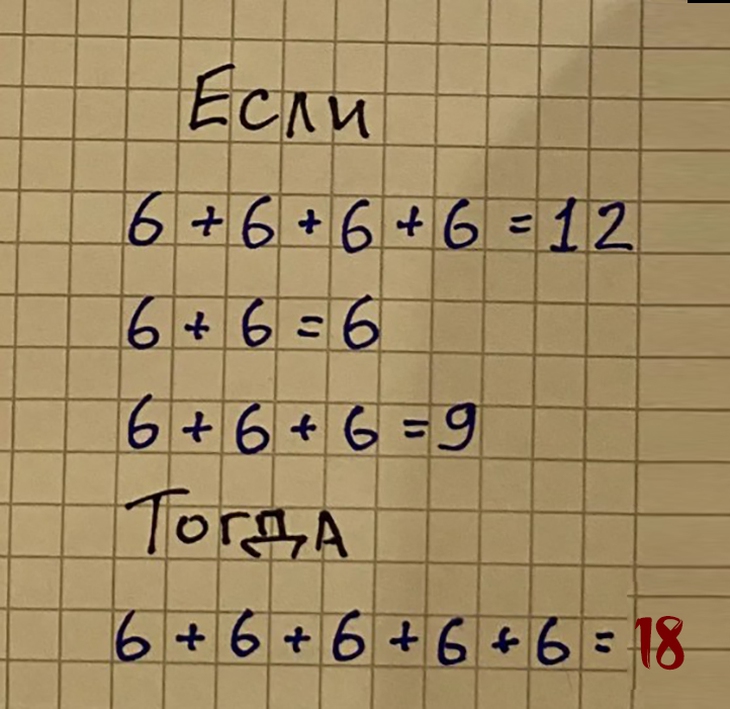 Если
6 + 6 + 6 + 6 = 12
6 + 6 = 6
6 + 6 + 6 = 9
Тогда
6 + 6 + 6 + 6 + 6 = 18